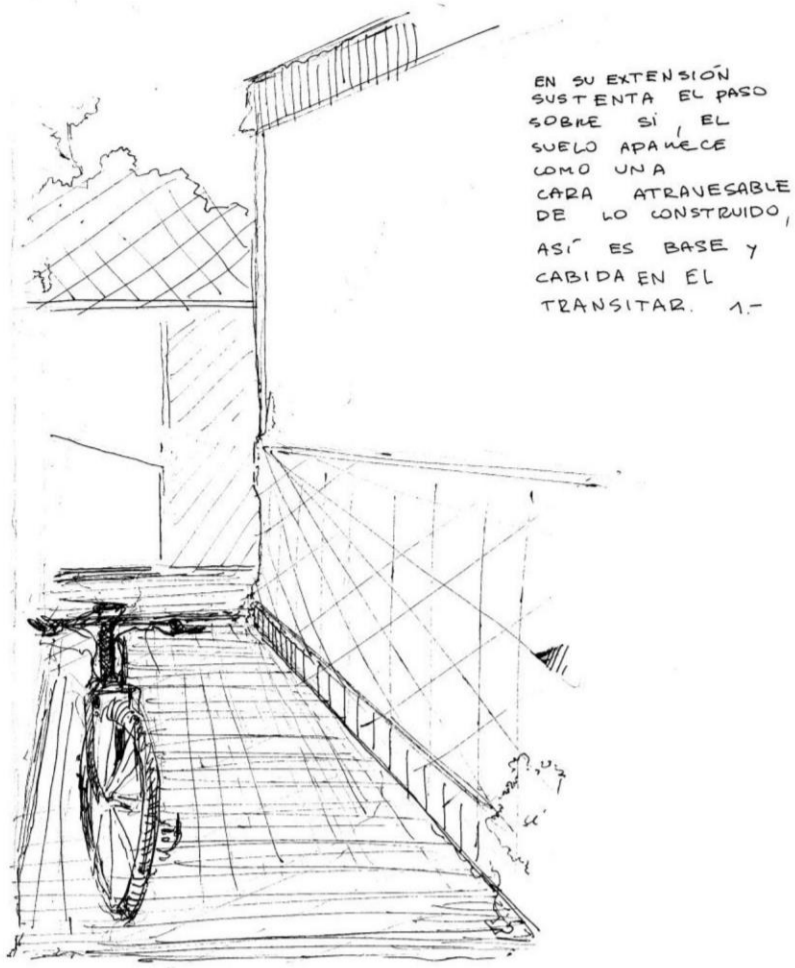 EN SU EXTENSIÓN
SUSTENTA EL PASO
SOBRE SÍ, EL
SUELO APARECE
COMO UNA
CARA ATRAVESABLE
DE LO CONSTRUIDO,
ASÍ ES BASE Y
CABIDA EN EL
TRANSITAR. 1.-